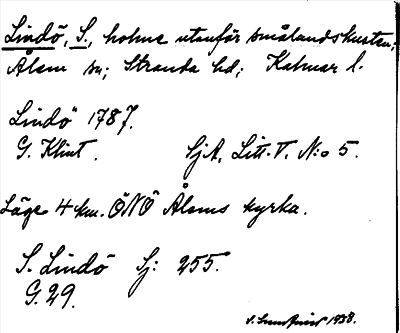 Lindö, S., holme utanför smålandskusten;
Ålem sn; Stranda hd; Kalmar l.
Lindö 1787.
G. Klint. SjA, Litt. V. N:o 5.
Läge 4 km. ÖNÖ Ålems kyrka.
S. Lindö Sj: 255.
G. 29.
1938.